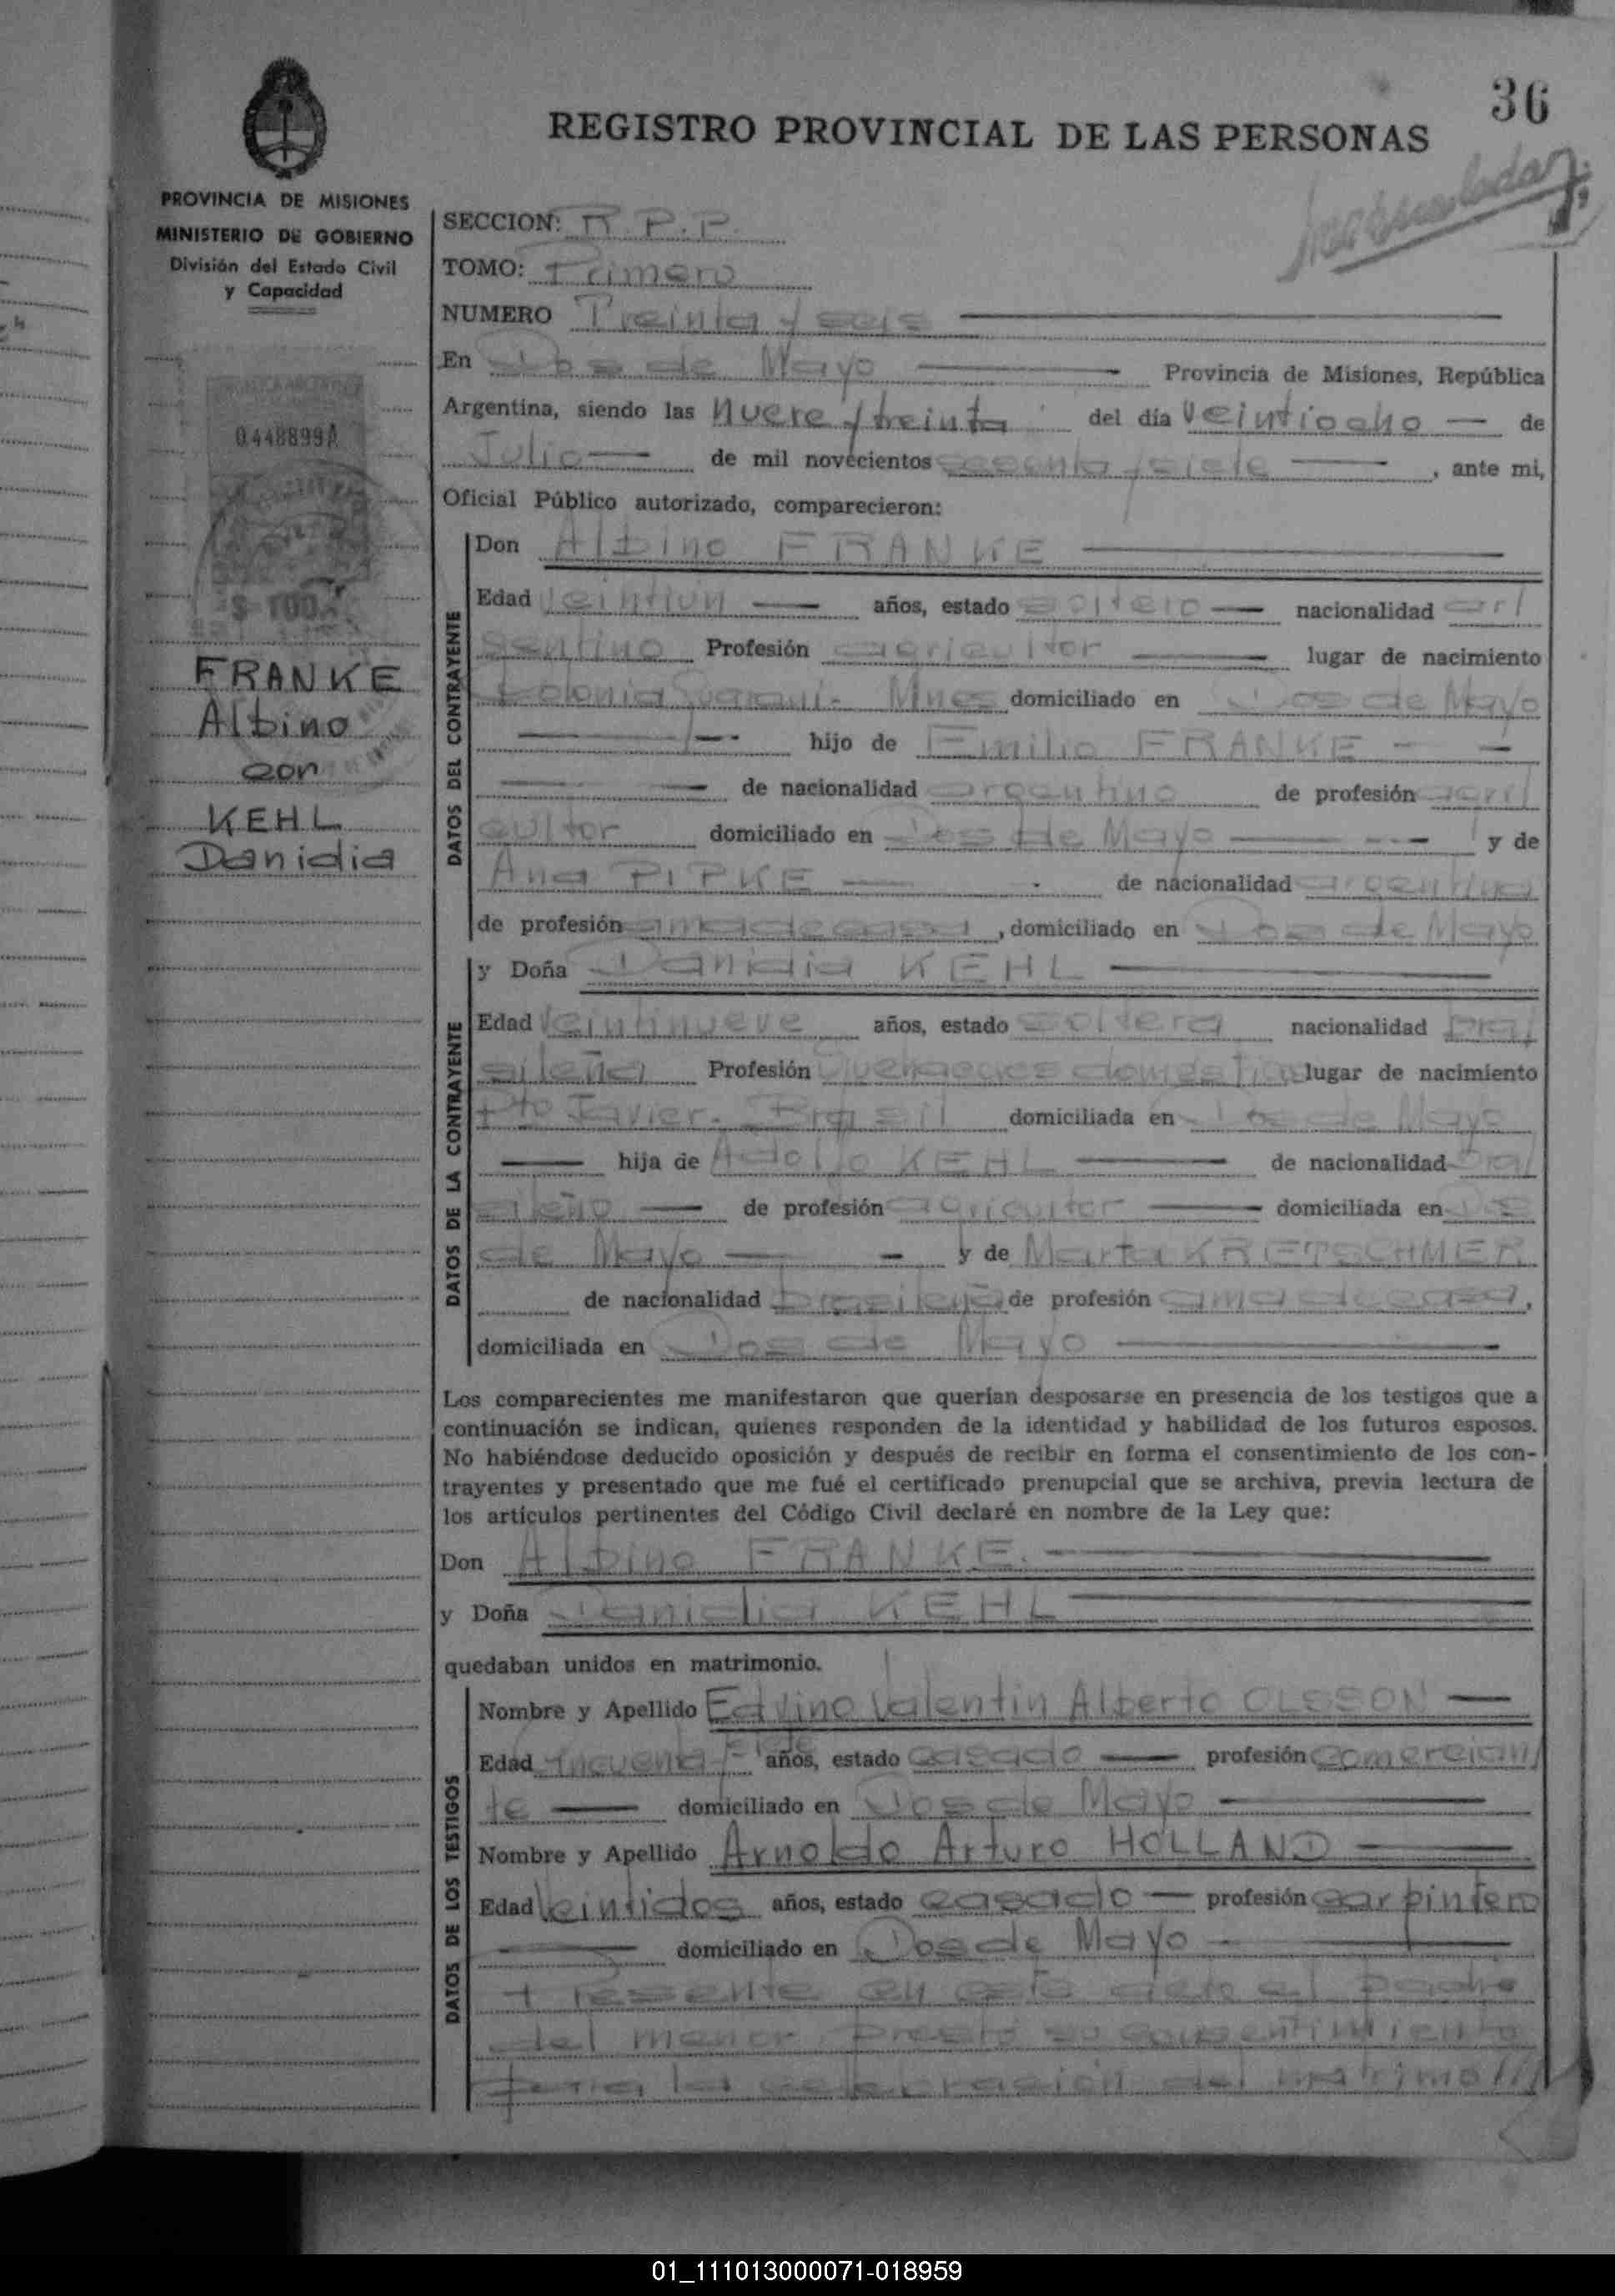 36
REGISTRO PROVINCIAL DE LAS PERSONAS
PROVINCIA DE MISIONES
MINISTERIO DE GOBIERNO
División del Estado Civil
y Capacidad
0.448899A
$ 100.
FRANKE
Albino
con
KEHL
Danidia
SECCION: R.P.P.
TOMO: Primero
NUMERO Treinta y seis
En Dos de Mayo Provincia de Misiones, República
Argentina, siendo las nueve y treinta del día veintiocho de
Julio de mil novecientos sesenta y siete, ante mi,
Oficial Público autorizado, comparecieron:
DATOS DEL CONTRAYENTE
Don Albino FRANKE
Edad veintiun años, estado soltero nacionalidad ar/
gentino Profesión agricultor lugar de nacimiento
Colonia Guaraní - Mnes domiciliado en Dos de Mayo
hijo de Emilio FRANKE
de nacionalidad argentino de profesión agri/
cultor domiciliado en Dos de Mayo y de
Ana PIPKE de nacionalidad argentina
de profesión ama de casa, domiciliado en Dos de Mayo
DATOS DE LA CONTRAYENTE
y Doña Danidia KEHL
Edad veintinueve años, estado soltera nacionalidad bra/
sileña Profesión Quehaceres domesticos lugar de nacimiento
Pto Javier - Brasil domiciliada en Dos de Mayo
hija de Adolfo KEHL de nacionalidad bra/
sileño de profesión agricultor domiciliada en Dos
de Mayo y de Marta KRETSCHMER
de nacionalidad brasileña de profesión ama de casa,
domiciliada en Dos de Mayo
Los comparecientes me manifestaron que querían desposarse en presencia de los testigos que a
continuación se indican, quienes responden de la identidad y habilidad de los futuros esposos.
No habiéndose deducido oposición y después de recibir en forma el consentimiento de los con-
trayentes y presentado que me fué el certificado prenupcial que se archiva, previa lectura de
los artículos pertinentes del Código Civil declaré en nombre de la Ley que:
Don Albino FRANKE.
y Doña Danidia KEHL
quedaban unidos en matrimonio.
DATOS DE LOS TESTIGOS
Nombre y Apellido Edvino Valentin Alberto OLSSON
Edad cincuenta años, estado casado profesión comercian/
te domiciliado en Dos de Mayo
Nombre y Apellido Arnoldo Arturo HOLLAND
Edad veintidos años, estado casado profesión carpintero
domiciliado en Dos de Mayo
Presente en este acto el padre
del menor, prestó su consentimiento
para la celebración del matrimo///
01_111013000071-018959